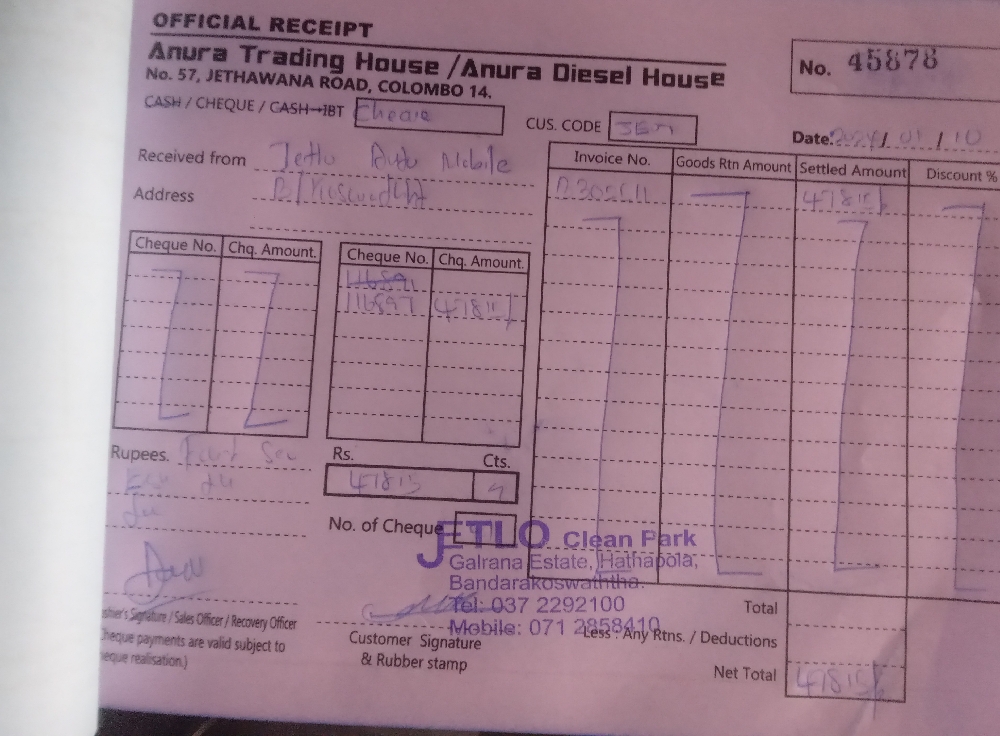 OFFICIAL RECEIPT
Anura Trading House / Anura Diesel House
No. 57, JETHAWANA ROAD, COLOMBO 14.
No. 45878
CASH / CHEQUE / CASH→IBT
CUS. CODE
Date: 2024 / 01 / 10
Received from Jetlo Auto Mobile
Address
Invoice No. Goods Rtn Amount Settled Amount Discount %
47815/
Cheque No. Chq. Amount. Cheque No. Chq. Amount.
116891
116897 47815/
Rupees.
Rs. Cts.
47815
No. of Cheque
JETLO Clean Park
Galrana Estate, Hathapola,
Bandarakoswaththa.
Tel: 037 2292100
Mobile: 071 2858410
Signature / Sales Officer / Recovery Officer
Cheque payments are valid subject to
cheque realisation.)
Customer Signature
& Rubber stamp
Total
Less - Any Rtns. / Deductions
Net Total 47815/